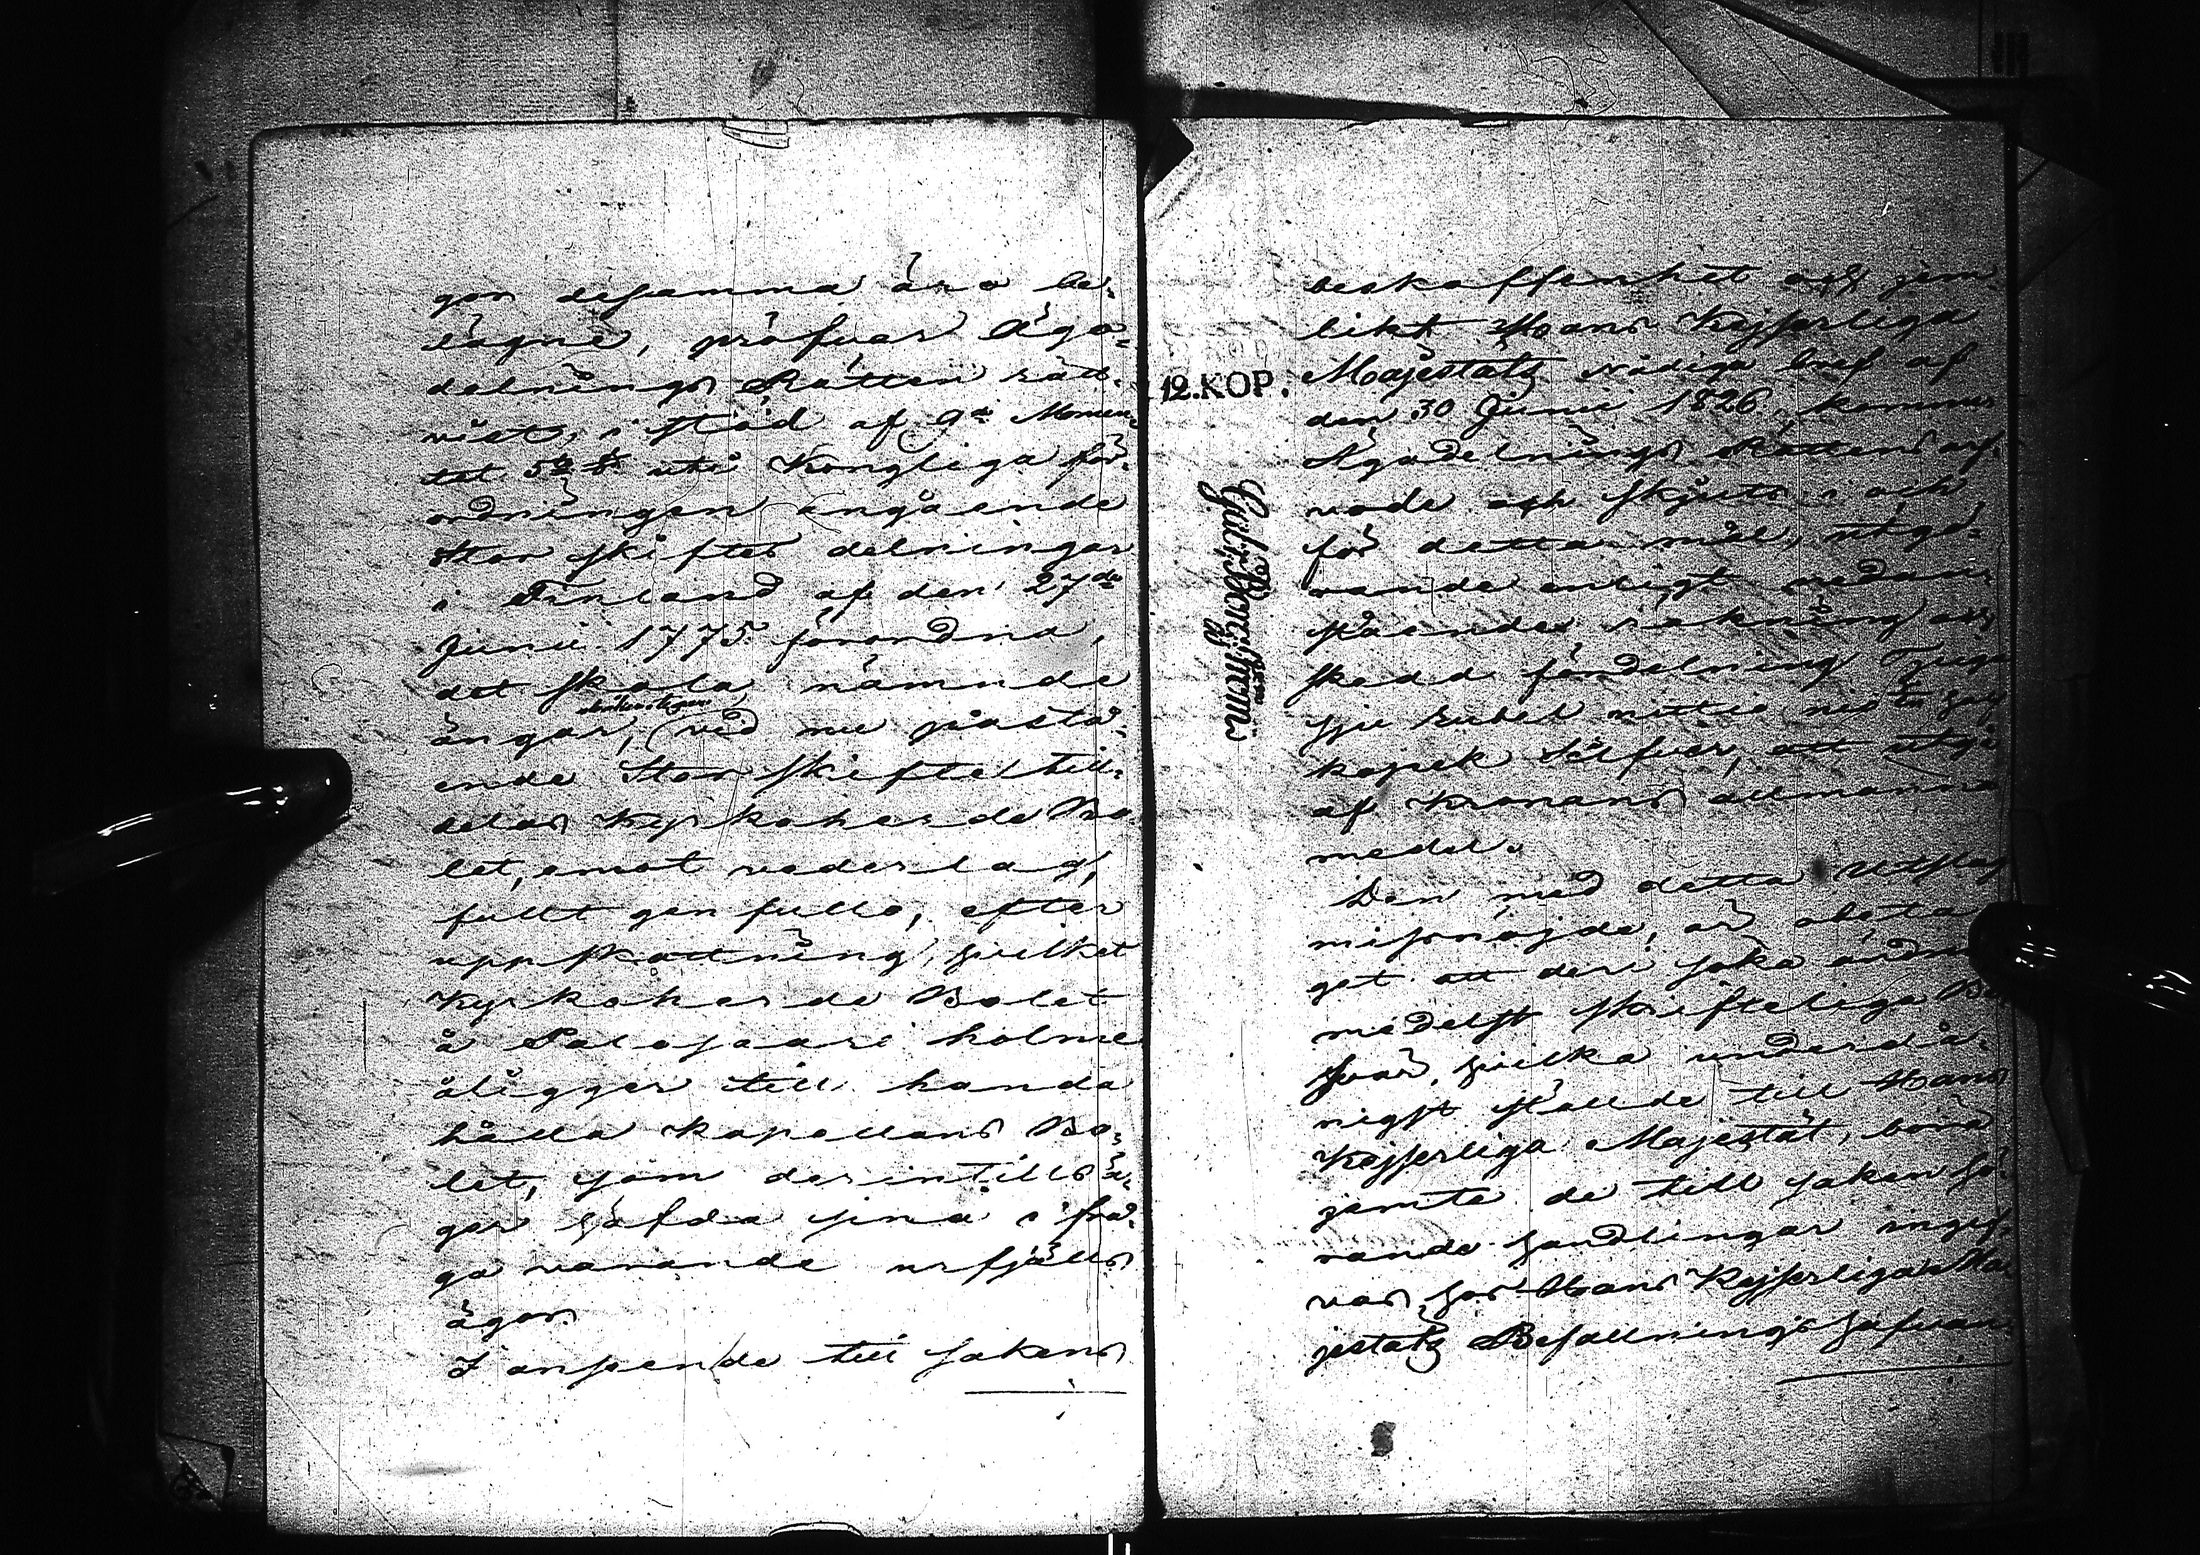 gor desamma äro be-
lägne, pröfvar Ägo-
delnings Rätten rätt-
vist, i stöd af 9de Momen-
tet 5 § uti Kongliga för-
ordningen angående
Stor skiftes delningar
i Finland af den 27de
Junii 1775 förordna,
det skola nämnde
ängar, vid nu påstå-
ende Stor skifte till-
delas Kyrkoherde Bo-
let, emot vederlag,
fullt gen fullo, efter
uppskattning, hvilket
Kyrkoherde Bolet
å Palosaari holme
ålägger till handa
hålla Kapellans Bo-
let, som derintills ä-
ger häfda sina i frå-
ga varande urfjälls
ägor.
I anseende till sakens
beskaffenhet och jem-
likt Hans Kejserliga
12.KOP. Majestäts Nådiga bref af
den 30 Junii 1826, kommer
Ägodelnings Rättens arf-
vode och skjuts i och
för detta mål, utgö-
rande enligt nedan-
stående räkning och
skedd fördelning Tjugu
sju rubel nittio
kopek Silfver, att utgå
af Kronans allmänna
medel.
Den med detta Utslag
missnöjde, är obeta-
get att deri söka ändring
medelst skrifteliga Be-
svär, hvilka underdå-
nigst ställde till Hans
Kejserliga Majestät, böra
jemte de till saken hö-
rande handlingar ingif-
vas hos Hans Kejserliga Ma-
jestäts Befallningshafvan-